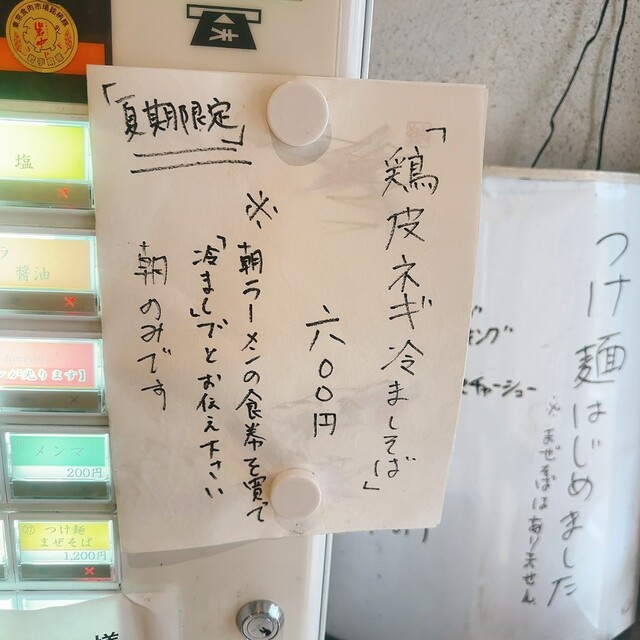 「夏期限定」
「鶏皮ネギ冷ましそば」
六〇〇円
※朝ラーメンの食券を買て
「冷まし」でとお伝え下さい
朝のみです
つけ麺はじめました
※まぜそばはありません
チャーシュー
塩
醤油
が光ります】
メンマ
200円
つけ麺
まぜそば
1,200円
様